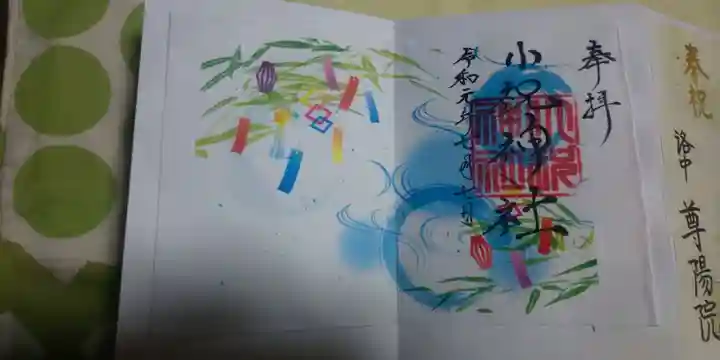 奉祝
洛中 尊陽院
奉拝
小祝神社
令和元年七月七日